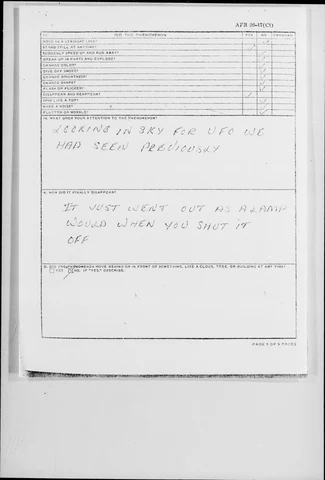 AFR 80-17(C1)
DID THE PHENOMENON
YES NO UNKNOWN
MOVE IN A STRAIGHT LINE?
STAND STILL AT ANYTIME?
SUDDENLY SPEED UP AND RUN AWAY?
BREAK UP IN PARTS AND EXPLODE?
CHANGE COLOR?
GIVE OFF SMOKE?
CHANGE BRIGHTNESS?
CHANGE SHAPE?
FLASH OR FLICKER?
DISAPPEAR AND REAPPEAR?
SPIN LIKE A TOP?
MAKE A NOISE?
FLUTTER OR WOBBLE?
WHAT DREW YOUR ATTENTION TO THE PHENOMENON?
LOOKING IN SKY FOR UFO WE
HAD SEEN PREVIOUSLY
A. HOW DID IT FINALLY DISAPPEAR?
IT JUST WENT OUT AS A LAMP
WOULD WHEN YOU SHUT IT
OFF
B. DID THE PHENOMENON MOVE BEHIND OR IN FRONT OF SOMETHING, LIKE A CLOUD, TREE, OR BUILDING AT ANY TIME?
YES NO. IF "YES," DESCRIBE.
PAGE 5 OF 9 PAGES